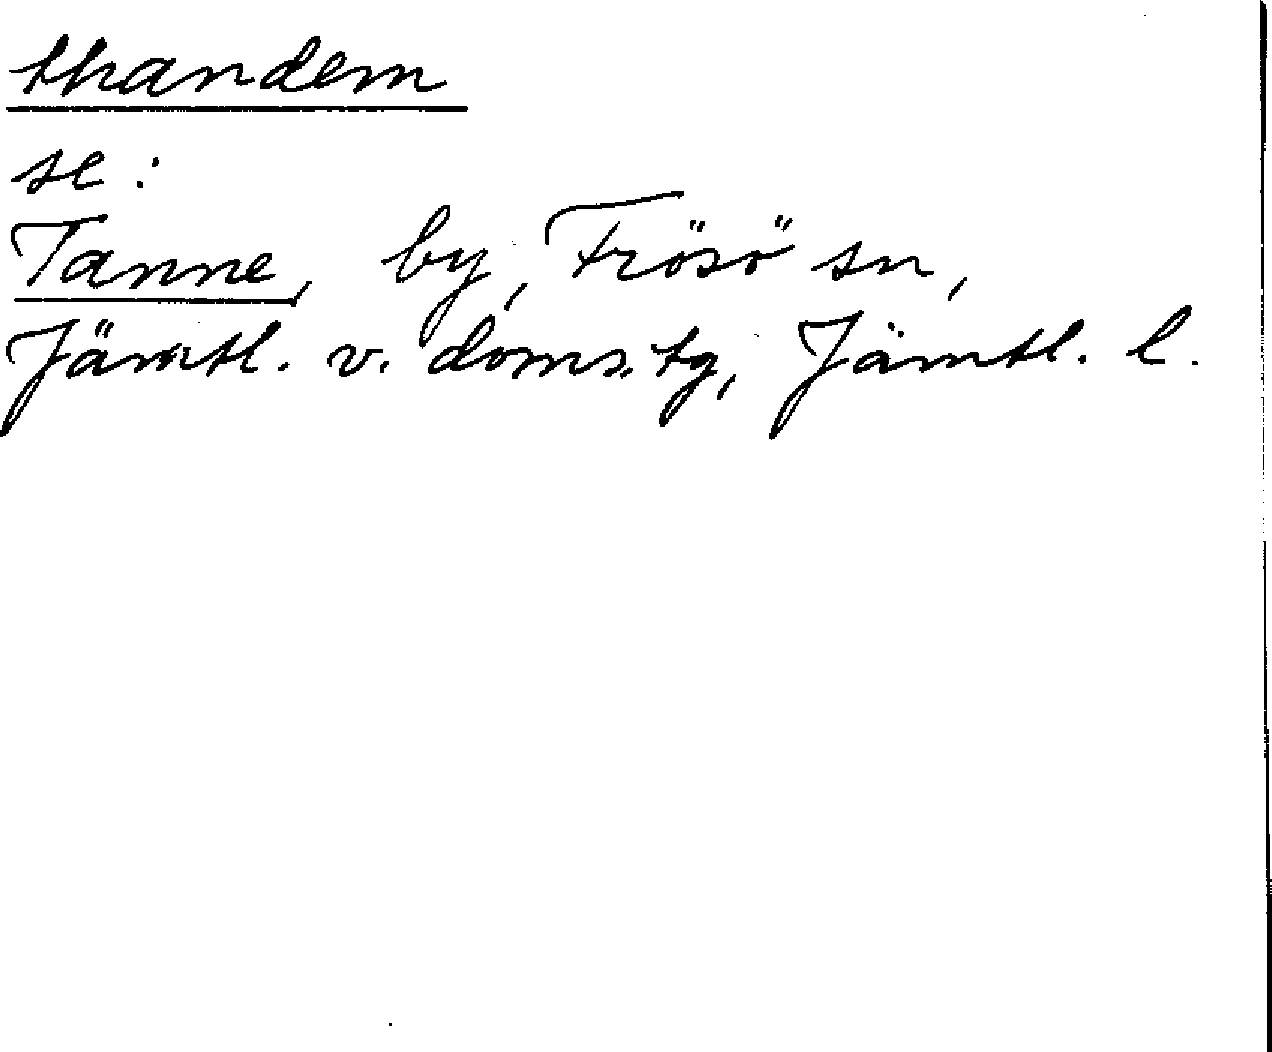 thandem
se:
Tanne, by, Frösö sn,
Jämtl. v. doms. tg, Jämtl. l.